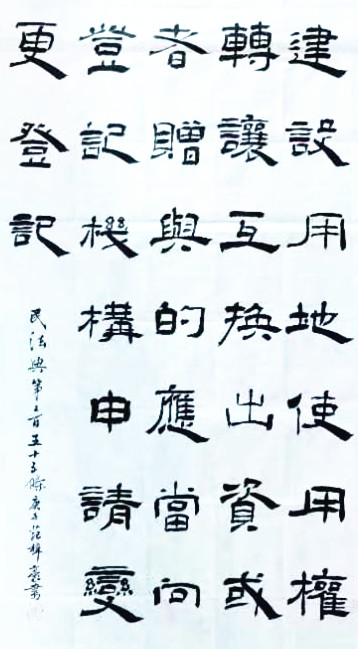 建設用地使用權
轉讓互換出資或
者贈與的應當向
登記機構申請變
更登記
民法典第三百五十五條庚子